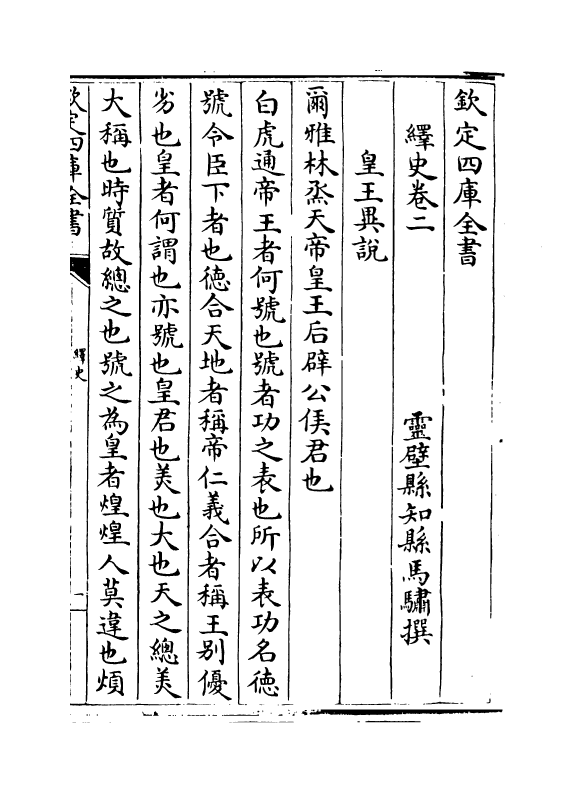 欽定四庫全書
繹史卷二　靈壁縣知縣馬驌撰
皇王異說
爾雅林烝天帝皇王后辟公侯君也
白虎通帝王者何號也號者功之表也所以表功名徳
號令臣下者也徳合天地者稱帝仁義合者稱王别優
劣也皇者何謂也亦號也皇君也美也大也天之總美
大稱也時質故總之也號之為皇者煌煌人莫違也煩
欽定四庫全書
繹史
一